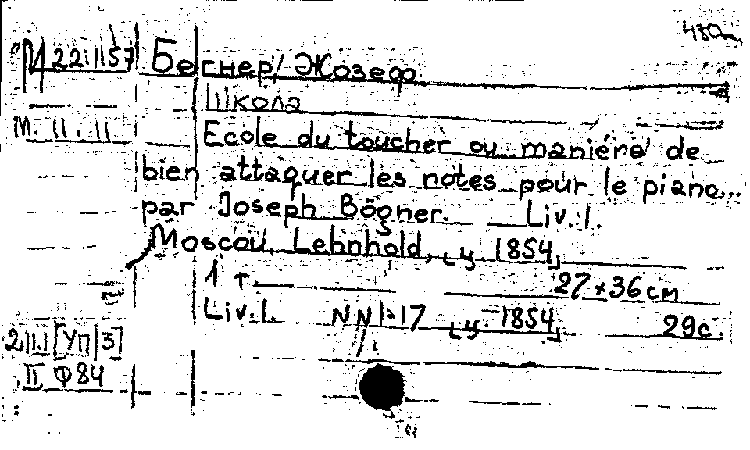 480
М 22157 Бегнер, Жозеф.
Школа
М. II. 11
Ecole du toucher ou maniére de
bien attaquer les notes pour le piano...
par Joseph Bögner. Liv. I.
Moscou, Lehnhold, ц 1854,
1 т. 27×36 см
Liv. I. NN 1-17 ц. 1854, 29 с.
2|11.1 [УП|3]
II Ф 84